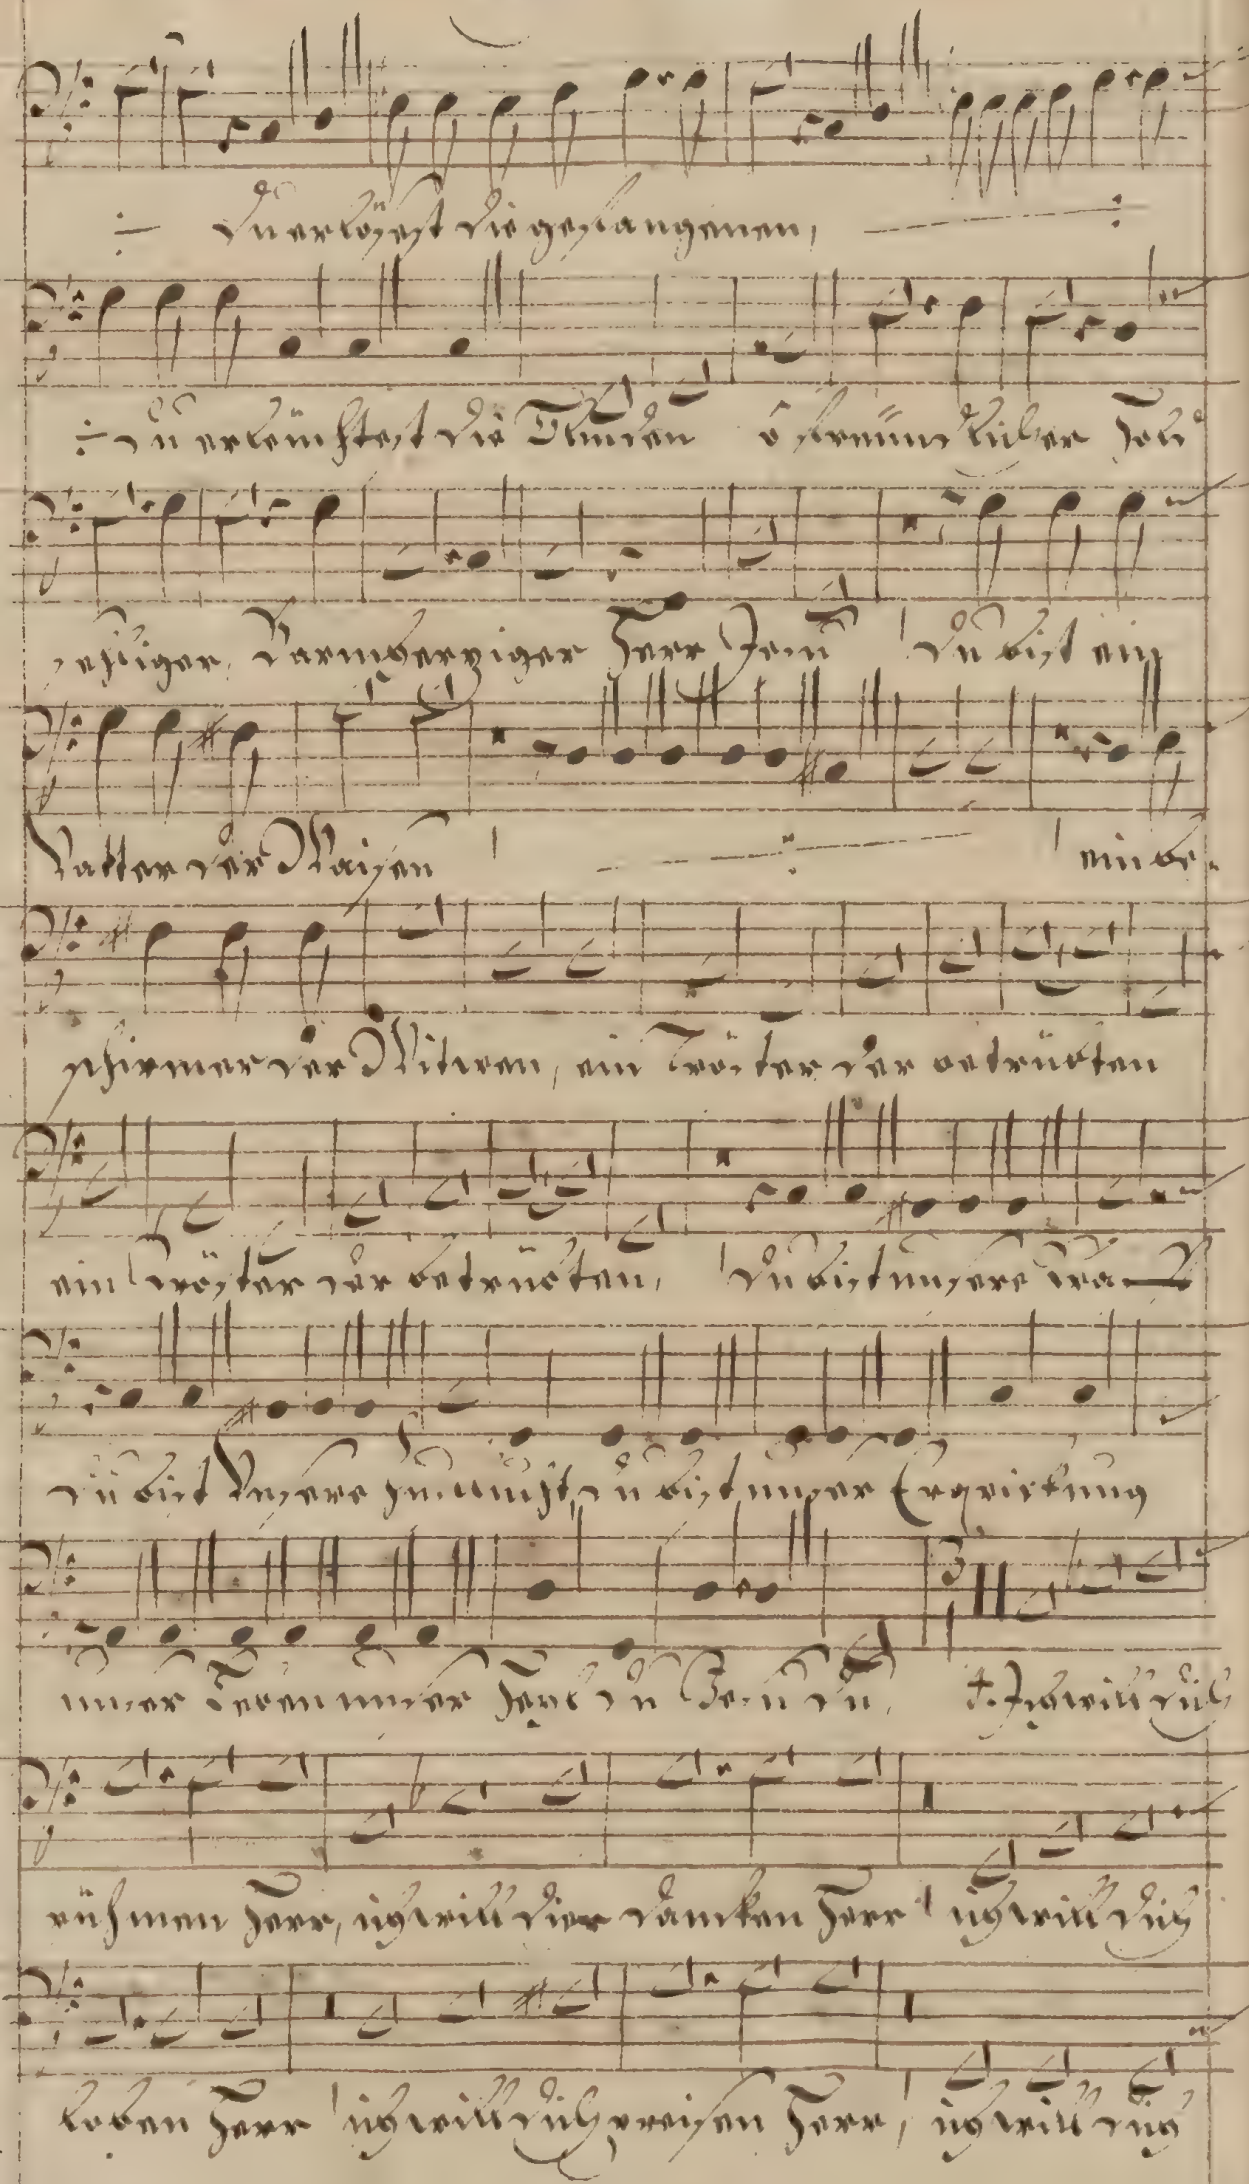 du erlösest die gefangenen,
du erleuchtest die Blinden o freundlicher hold
seeliger, Barmhertziger Herr Jesu du bist ein
Vatter der Waisen ein be-
schirmer der Witwen, ein Tröster der betrübten
ein Tröster der betrübten, du bist unsere
du bist Unsere Zuversicht, du bist unser Erquickung
unser Leben unser Heyl du Jesu du, Ich will dich
rühmen Herr, ich will dier dancken Herr ich will dich
loben Herr ich will dich preisen Herr, ich will dich